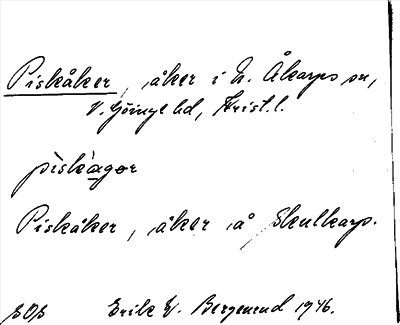 Piskåker, åker i N. Åkarps sn,
V. Göinge hd, Krist. l.
pìskàgor
Piskåker, åker å Skulkarp.
Erik W. Bergenund 1946.